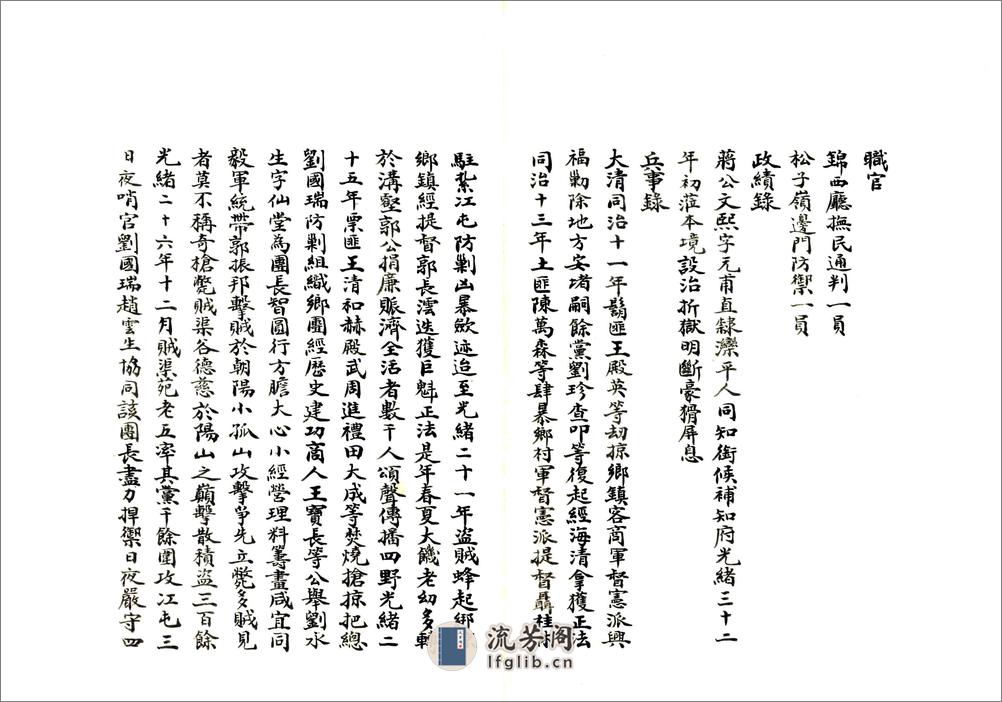 職官
錦西廳撫民通判一員
松子嶺邊門防禦一員
政績錄
蔣公文熙字元甫直隸灤平人同知銜候補知府光緒三十二
年初蒞本境設治折獄明斷豪猾屏息
兵事錄
大清同治十一年鬍匪王殿英等劫掠鄉鎮客商軍督憲派興
福勦除地方安堵嗣餘黨劉珍查叩等復起經海清拿獲正法
同治十三年土匪陳萬森等肆暴鄉村軍督憲派提督聶桂
駐紮江屯防剿凶暴歛迹迨至光緒二十一年盜賊蜂起綁
鄉鎮經提督郭長澐迭獲巨魁正法是年春夏大饑老幼多轉
於溝壑郭公捐廉賑濟全活者數千人頌聲傳播四野光緒二
十五年票匪王清和赫殿武周進禮田大成等焚燒搶掠把總
劉國瑞防剿組織鄉團經歷史建功商人王寶長等公舉劉水
生字仙堂為團長智圓行方膽大心小經營理料籌畫咸宜同
毅軍統帶郭振邦擊賊於朝陽小孤山攻擊爭先立斃多賊見
者莫不稱奇槍斃賊渠谷德慈於陽山之巔擊散積盜三百餘
光緒二十六年十二月賊渠苑老五率其黨千餘圍攻江屯三
日夜哨官劉國瑞趙雲生協同該團長盡力捍禦日夜嚴守四
流芳阁
lfglib.cn